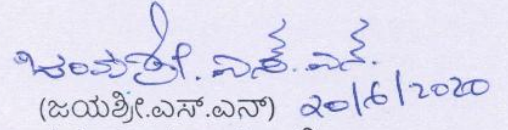 ಜಯಶ್ರೀ. ಎಸ್. ಎನ್.
(ಜಯಶ್ರೀ.ಎಸ್.ಎನ್) 20/6/2020